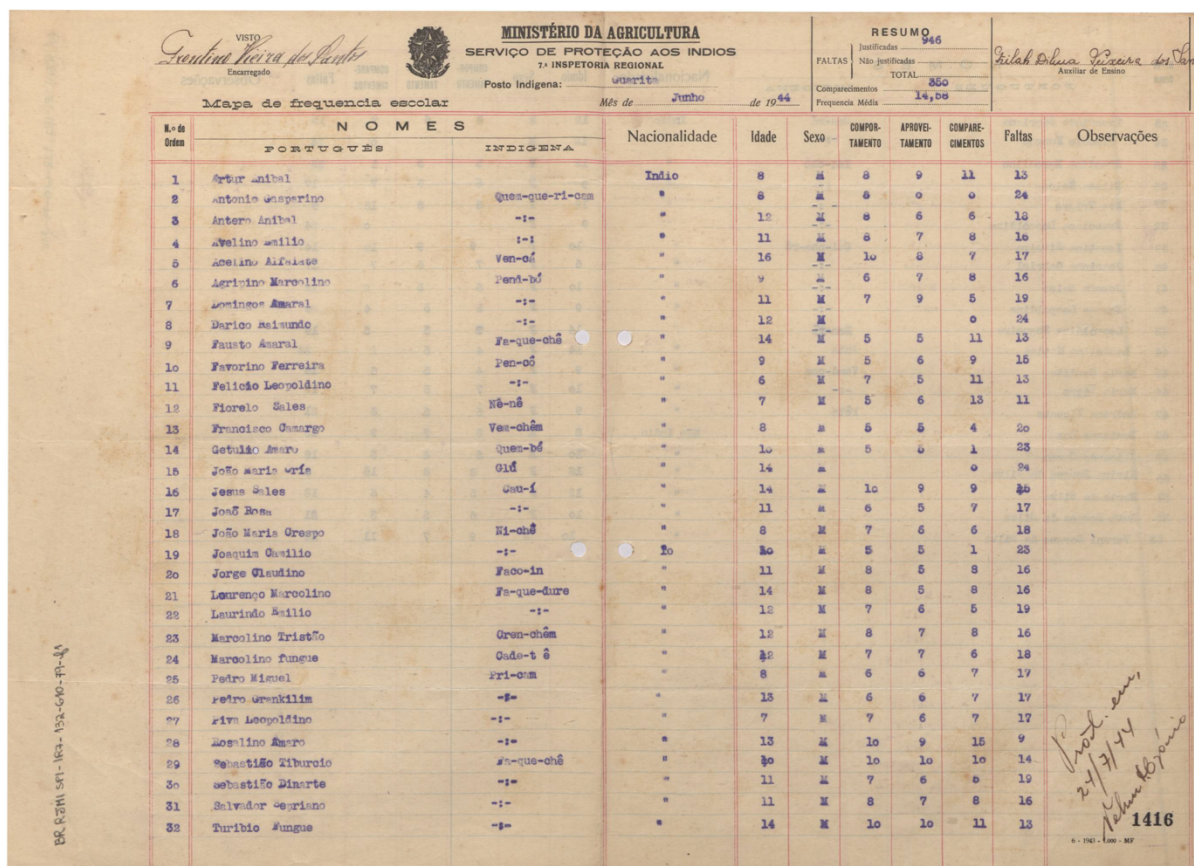 VISTO
Encarregado
MINISTÉRIO DA AGRICULTURA
SERVIÇO DE PROTEÇÃO AOS INDIOS
7.ª INSPETORIA REGIONAL
Posto Indigena: Guarita
Mapa de frequencia escolar
Mês de Junho de 1944
RESUMO
FALTAS Justificadas 946
Não justificadas
TOTAL
Comparecimentos 350
Frequencia Média 14,58
Auxiliar de Ensino
N.º de Ordem NOMES Nacionalidade Idade Sexo COMPOR-TAMENTO APROVEI-TAMENTO COMPARE-CIMENTOS Faltas Observações
PORTUGUÊS INDIGENA
1 Artur Anibal Indio 8 M 8 9 11 13
2 Antonio Gasparino Quem-que-ri-cam " 8 M 8 o o 24
3 Antero Anibal -:- " 12 M 8 6 6 18
4 Avelino Emilio :-: " 11 M 8 7 8 16
5 Acelino Alfaiate Ven-cá " 16 M 1o 8 7 17
6 Agripino Marcolino Penã-bó " 9 M 6 7 8 16
7 Domingos Amaral -:- " 11 M 7 9 5 19
8 Darico Raimundo -:- " 12 M o 24
9 Fausto Amaral Fa-que-chê " 14 M 5 5 11 13
1o Favorino Ferreira Pen-có " 9 M 5 6 9 15
11 Felicio Leopoldino -:- " 6 M 7 5 11 13
12 Fiorelo Sales Nê-nê " 7 M 5 6 13 11
13 Francisco Camargo Vem-chêm " 8 M 5 5 4 2o
14 Getulio Amaro Quem-bé " 1o M 5 5 1 23
15 João Maria Glú " 14 M o 24
16 Jesus Sales Cau-í " 14 M 1o 9 9 15
17 João Rosa -:- " 11 M 6 5 7 17
18 João Maria Crespo Ni-chê " 8 M 7 6 6 18
19 Joaquim Camilio -:- 1o M 5 5 1 23
2o Jorge Claudino Faco-in " 11 M 8 5 8 16
21 Lourenço Marcolino Fa-que-dure " 14 M 8 5 8 16
22 Laurindo Emilio -:- " 12 M 7 6 5 19
23 Marcolino Tristão Oren-chêm " 12 M 8 7 8 16
24 Marcolino fungue Cade-t ê " 12 M 7 7 6 18
25 Pedro Miguel Pri-cam " 8 M 6 6 7 17
26 Pedro Grankilim -:- " 13 M 6 6 7 17
27 Leopoldino -:- " 7 M 7 6 7 17
28 Rosalino Amaro -:- " 13 M 1o 9 15 9
29 Sebastião Tiburcio Fa-que-chê " 1o M 1o 1o 1o 14
3o Sebastião Dinarte -:- " 11 M 7 6 5 19
31 Salvador Sepriano -:- " 11 M 8 7 8 16
32 Turibio Fungue -:- " 14 M 1o 1o 11 13
em,
24/7/44
1416
6 - 1943 - 1.000 - MF